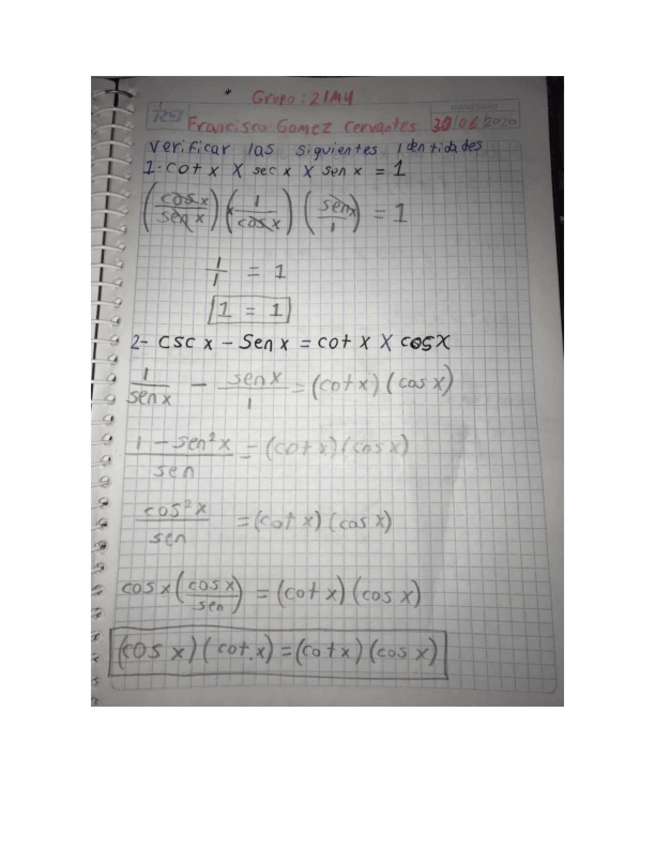 * Grupo: 21M4
Francisco Gomez Cervantes 30 06 2020
Verificar las siguientes identidades
1. cot x X sec x X sen x = 1
(cos x / sen x) (1 / cos x) (sen x / 1) = 1
1/1 = 1
1 = 1
2- csc x - Sen x = cot x X cos x
1 / sen x - sen x / 1 = (cot x) (cos x)
1 - sen² x / sen = (cot x) (cos x)
cos² x / sen = (cot x) (cos x)
cos x (cos x / sen) = (cot x) (cos x)
(cos x) (cot x) = (cot x) (cos x)